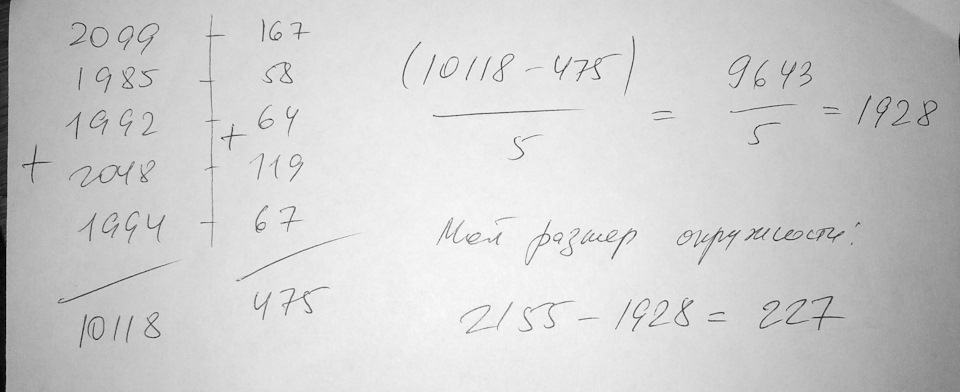 2099 - 167
1985 - 58
1992 - 64
+ +
2048 - 119
1994 - 67
10118 475
(10118 - 475) / 5 = 9643 / 5 = 1928
Мой размер окружности:
2155 - 1928 = 227